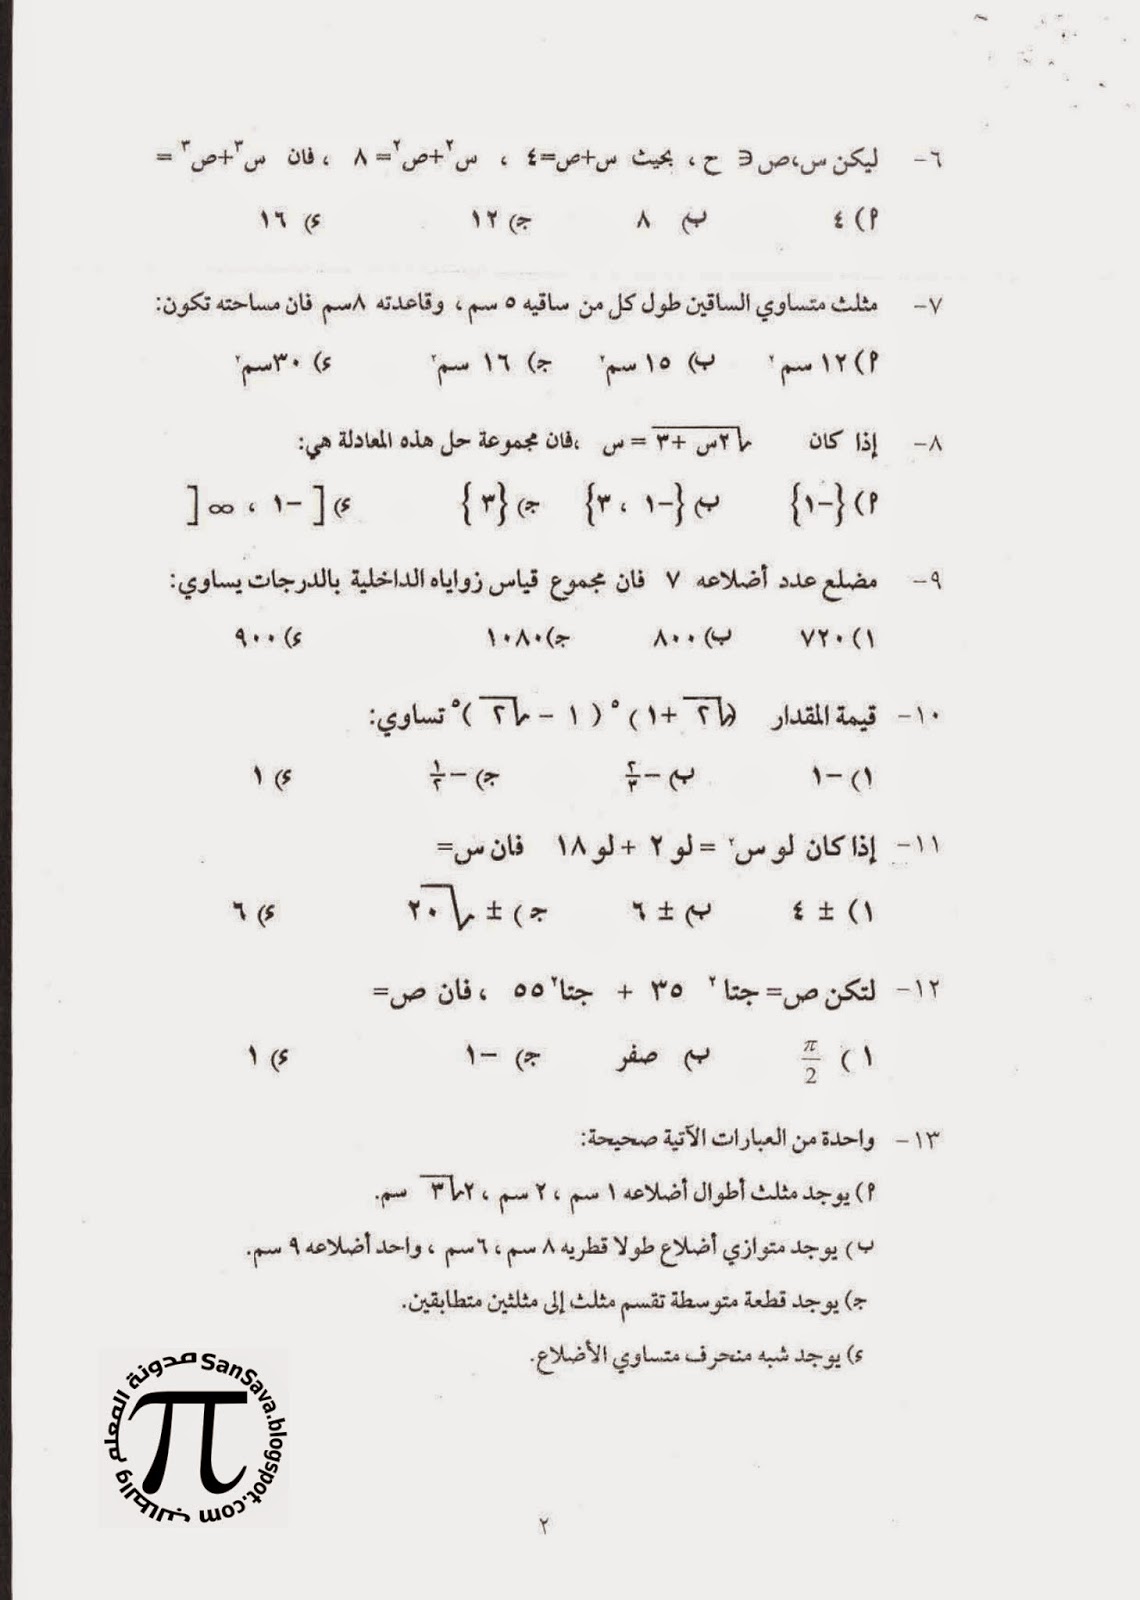 ٦- ليكن س،ص ∈ ح ، بحيث س+ص=٤ ، س٢+ص٢= ٨ ، فان س٣+ص٣ =
أ) ٤ ب) ٨ ج) ١٢ د) ١٦
٧- مثلث متساوي الساقين طول كل من ساقيه ٥ سم ، وقاعدته ٨سم فان مساحته تكون:
أ) ١٢ سم٢ ب) ١٥ سم٢ ج) ١٦ سم٢ د) ٣٠سم٢
٨- إذا كان √(٢س+٣) = س ،فان مجموعة حل هذه المعادلة هي:
أ) {-١} ب) {-١ ، ٣} ج) {٣} د) [-١ ، ∞[
٩- مضلع عدد أضلاعه ٧ فان مجموع قياس زواياه الداخلية بالدرجات يساوي:
١) ٧٢٠ ب) ٨٠٠ ج) ١٠٨٠ د) ٩٠٠
١٠- قيمة المقدار (√٢ +١)٥ (١ - √٢)٥ تساوي:
١) -١ ب) -٢/٣ ج) -١/٢ د) ١
١١- إذا كان لو س٢ = لو ٢ + لو ١٨ فان س=
١) ± ٤ ب) ± ٦ ج) ± √٢٠ د) ٦
١٢- لتكن ص= جتا٢ ٣٥ + جتا٢ ٥٥ ، فان ص=
١) π/2 ب) صفر ج) -١ د) ١
١٣- واحدة من العبارات الآتية صحيحة:
أ) يوجد مثلث أطوال أضلاعه ١ سم ، ٢ سم ، ٢√٣ سم.
ب) يوجد متوازي أضلاع طولا قطريه ٨ سم ، ٦سم ، واحد أضلاعه ٩ سم.
ج) يوجد قطعة متوسطة تقسم مثلث إلى مثلثين متطابقين.
د) يوجد شبه منحرف متساوي الأضلاع.
مدونة المعلم والطالب SanSava.blogspot.com
π
٢